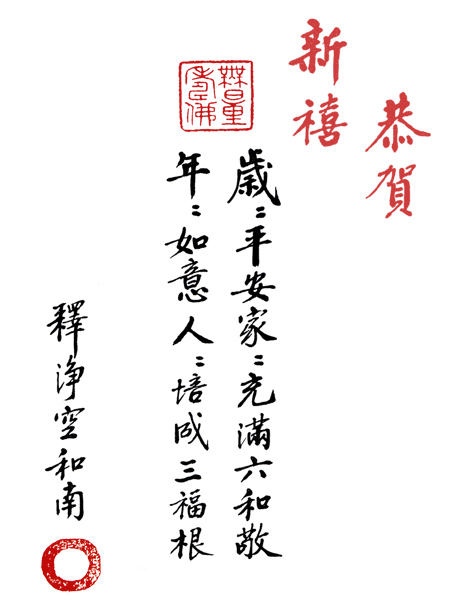 恭賀
新禧
無量壽佛
歲〻平安家〻充滿六和敬
年〻如意人〻培成三福根
釋淨空和南